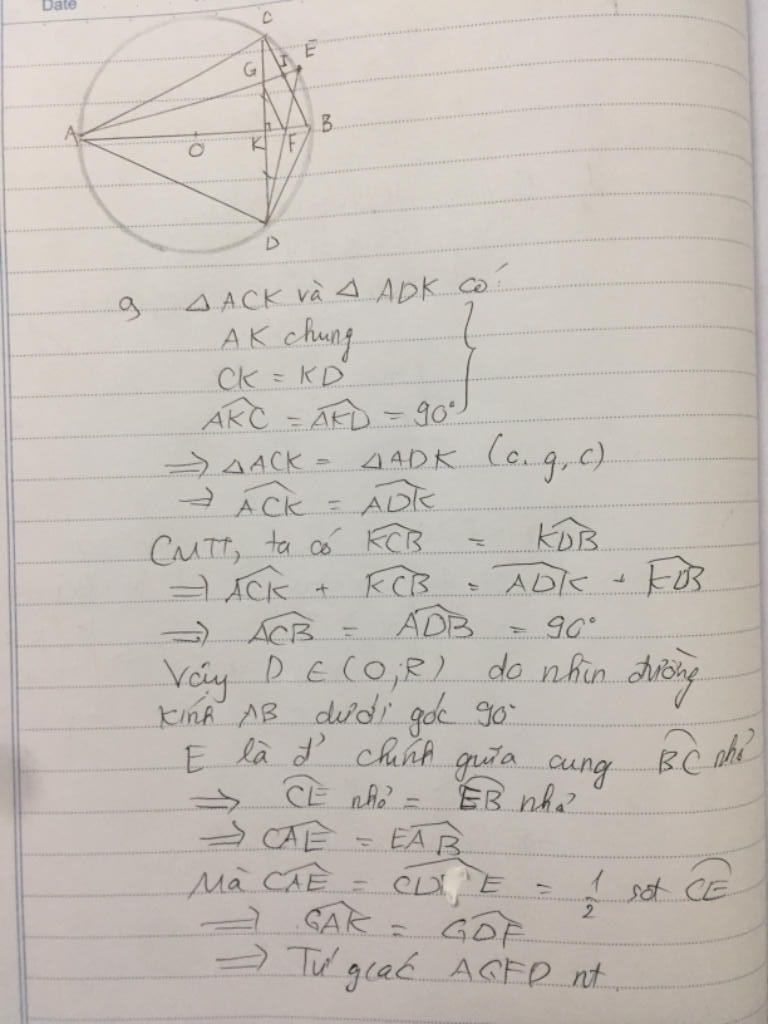 Date
C
E
G
I
A
B
K
F
O
D
a, △ ACK và △ ADK có:
AK chung
CK = KD
\widehat{AKC} = \widehat{AKD} = 90°
⇒ △ACK = △ADK (c.g,c)
⇒ \widehat{ACK} = \widehat{ADK}
CMTT, ta có \widehat{KCB} = \widehat{KDB}
⇒ \widehat{ACK} + \widehat{KCB} = \widehat{ADK} + \widehat{KDB}
⇒ \widehat{ACB} = \widehat{ADB} = 90°
Vậy D ∈ (O;R) do nhìn đường
kính AB dưới góc 90°
E là đ' chính giữa cung \widehat{BC} nhỏ
⇒ \widehat{CE} nhỏ = \widehat{EB} nhỏ
⇒ \widehat{CAE} = \widehat{EAB}
Mà \widehat{CAE} = \widehat{CDE} = \frac{1}{2} sđ \widehat{CE}
⇒ \widehat{GAK} = \widehat{GDF}
⇒ Tứ giác AGFD nt.